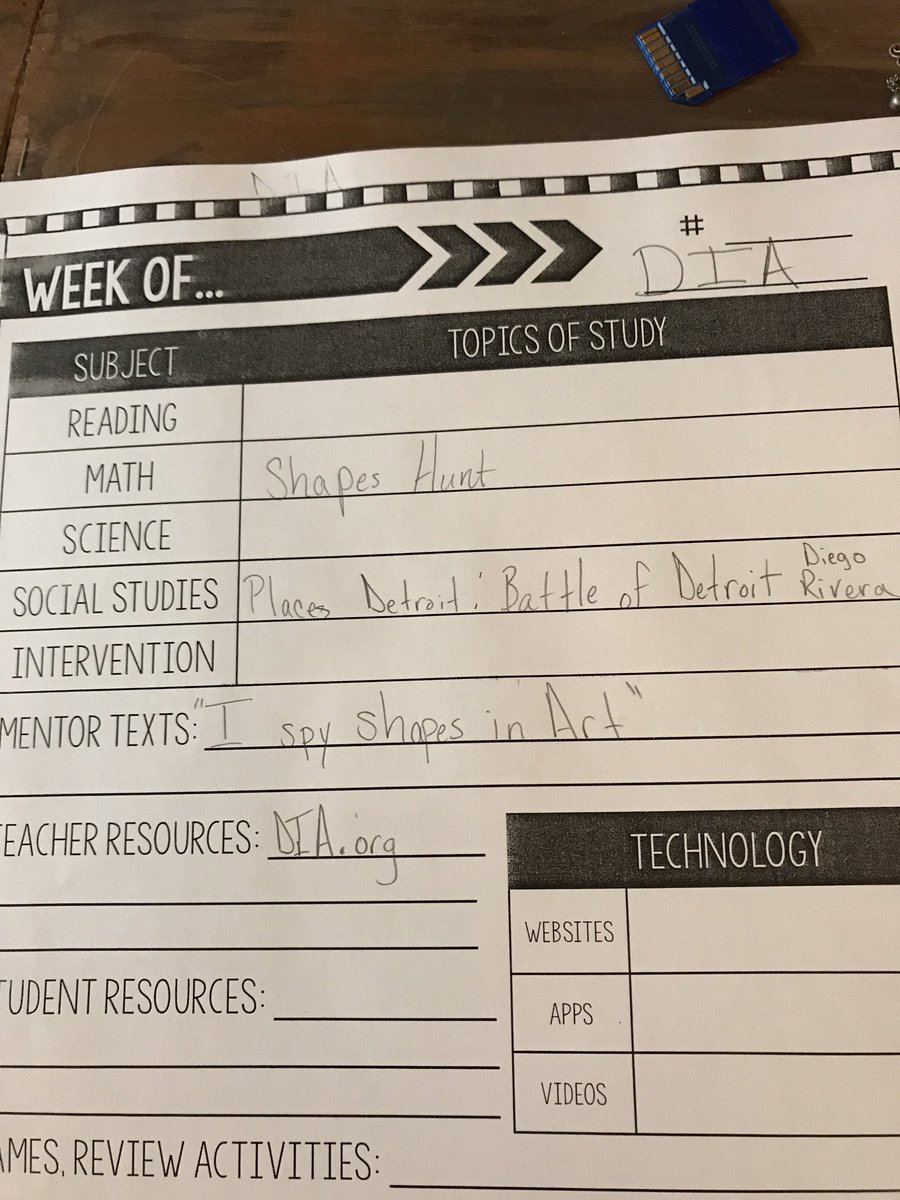 DIA
#
WEEK OF...
DIA
SUBJECT TOPICS OF STUDY
READING
MATH Shapes Hunt
SCIENCE
SOCIAL STUDIES Places Detroit: Battle of Detroit Diego Rivera
INTERVENTION
MENTOR TEXTS: "I spy shapes in Art"
TEACHER RESOURCES: DIA.org
TECHNOLOGY
WEBSITES
STUDENT RESOURCES:
APPS
VIDEOS
AMES, REVIEW ACTIVITIES: